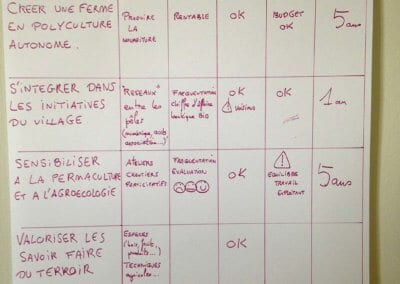 CRÉER UNE FERME
EN POLYCULTURE
AUTONOME.
PRODUIRE
LA
NOURRITURE
RENTABLE
OK
BUDGET
OK
5
ans
S'INTEGRER DANS
LES INITIATIVES
DU VILLAGE
"RESEAUX"
entre les
pôles
association...)
FREQUENTATION
chiffre d'affaire
boutique BIO
OK
VOISINS
OK
1 an
SENSIBILISER
A LA PERMACULTURE
ET A L'AGROECOLOGIE
ATELIERS
CHANTIERS
PARTICIPATIFS
FREQUENTATION
EVALUATION
OK
EQUILIBRE
TRAVAIL
EXPLOITANT
5
ans
VALORISER LES
SAVOIR FAIRE
DU TERROIR
ESPECES
produits...)
TECHNIQUES
agricoles...
OK